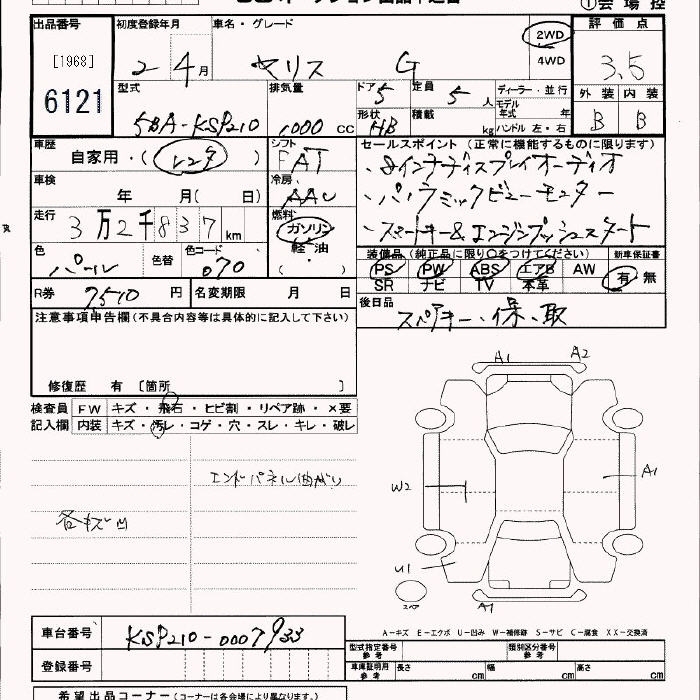 ①会場控
出品番号 初度登録年月 車名・グレード 2WD 評価点
[1968] 2 4月 ヤリス G 4WD 3.5
6121 型式 排気量 ドア 5 定員 5人 ディーラー・並行 外装 内装
5BA-KSP210 1000cc 形状 HB 積載 kg モデル年式 年 B B
ハンドル 左・右
車歴 自家用・(レンタ) シフト FAT セールスポイント (正常に機能するものに限ります)
車検 年 月(日) 冷房 AAC ・8インチディスプレイオーディオ
走行 3万2千837km 燃料 ガソリン ・パノラミックビューモニター
軽油 ・スマートキー&エンジンプッシュスタート
色 パール 色替 色コード 070 ( ) 装備品 (純正品に限り○をつけてください) 新車保証書
PS PW ABS エアB AW 有・無
SR ナビ TV 本革
R券 7510円 名変期限 月 日 後日品 スペアキー、保、取
注意事項申告欄(不具合内容等は具体的に記入して下さい)
修復歴 有 [箇所 ]
検査員 FW キズ・飛石・ヒビ割・リペア跡・×要
記入欄 内装 キズ・汚レ・コゲ・穴・スレ・キレ・破レ
A1 A2
エンドパネル曲がり
W2 A1
各キズ凹
U1
スペア A1
車台番号 KSP210-0007933
A-キズ E-エクボ U-凹み W-補修跡 S-サビ C-腐食 XX-交換済
登録番号 型式指定番号 参考 類別区分番号 参考
車庫証明用 参考 長さ cm 幅 cm 高さ cm
希望出品コーナー(コーナーは各会場により異なります。)